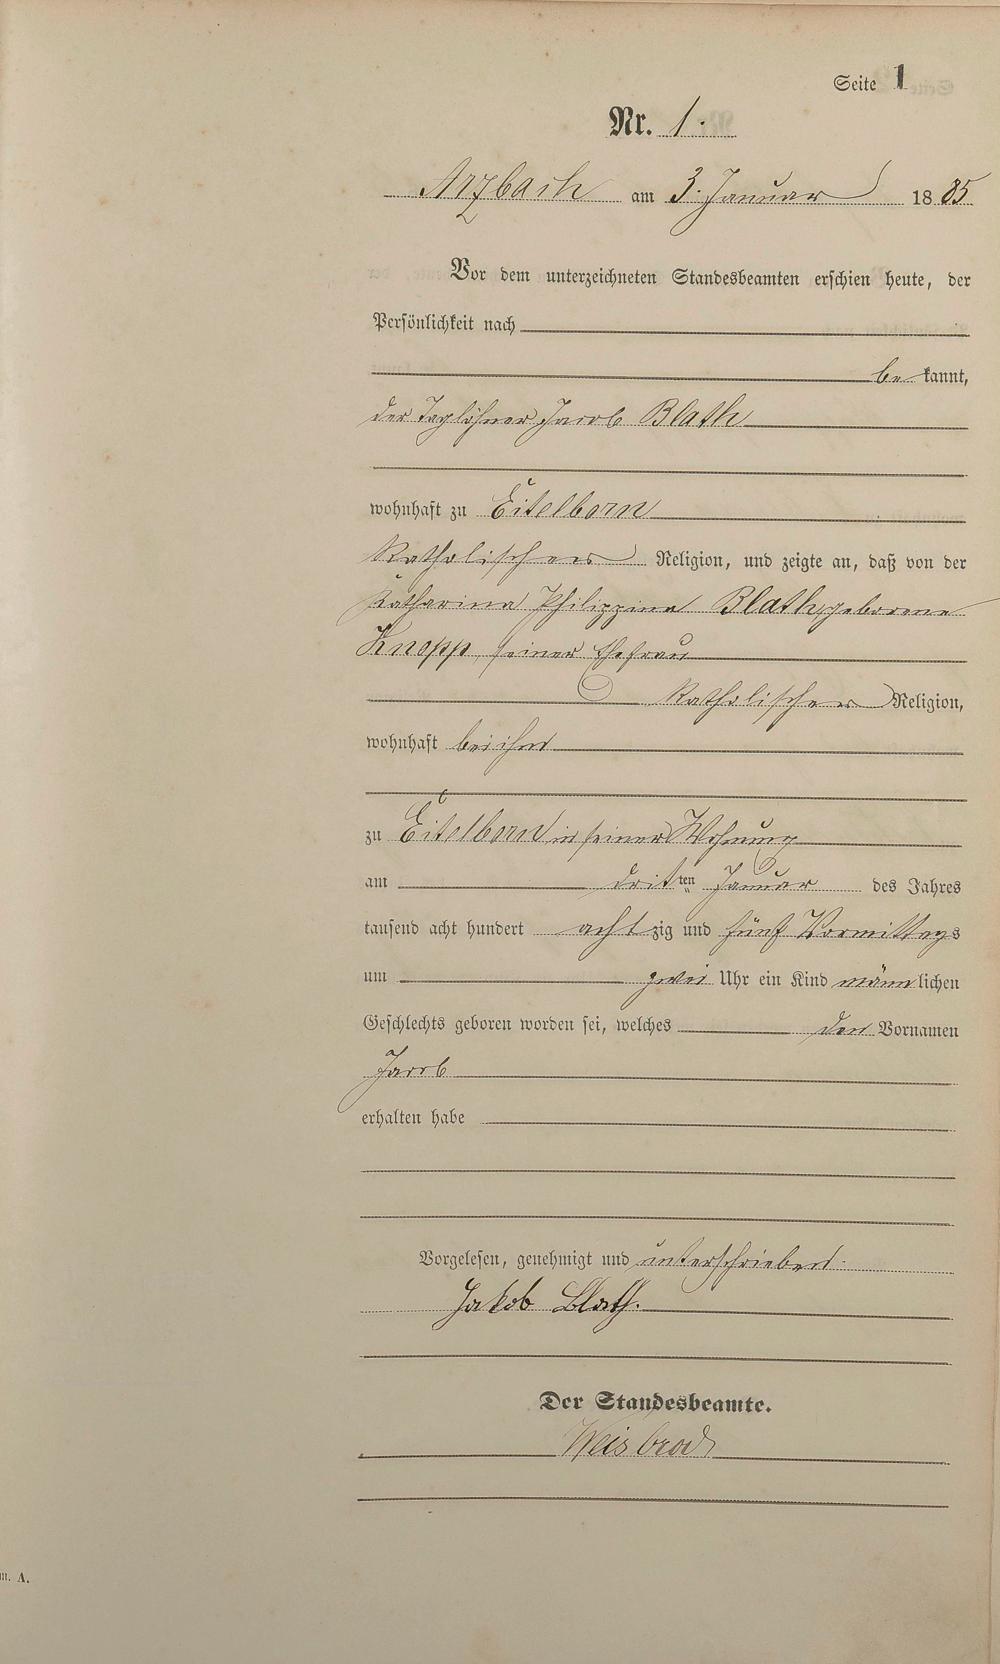 Seite 1
Nr. 1.
Arzbach am 3. Januar 1885
Vor dem unterzeichneten Standesbeamten erschien heute, der
Persönlichkeit nach
bekannt,
der Taglöhner Jacob Blath
wohnhaft zu Eitelborn
katholischer Religion, und zeigte an, daß von der
Katharina Philippina Blath, geborene
Knopp seiner Ehefrau
katholischer Religion,
wohnhaft bei ihm
zu Eitelborn in seiner Wohnung
am dritten Januar des Jahres
tausend acht hundert achtzig und fünf Vormittags
um zwei Uhr ein Kind männlichen
Geschlechts geboren worden sei, welches den Vornamen
Jacob
erhalten habe
Vorgelesen, genehmigt und unterschrieben.
Jakob Blath.
Der Standesbeamte.
Weisbrod
m. A.